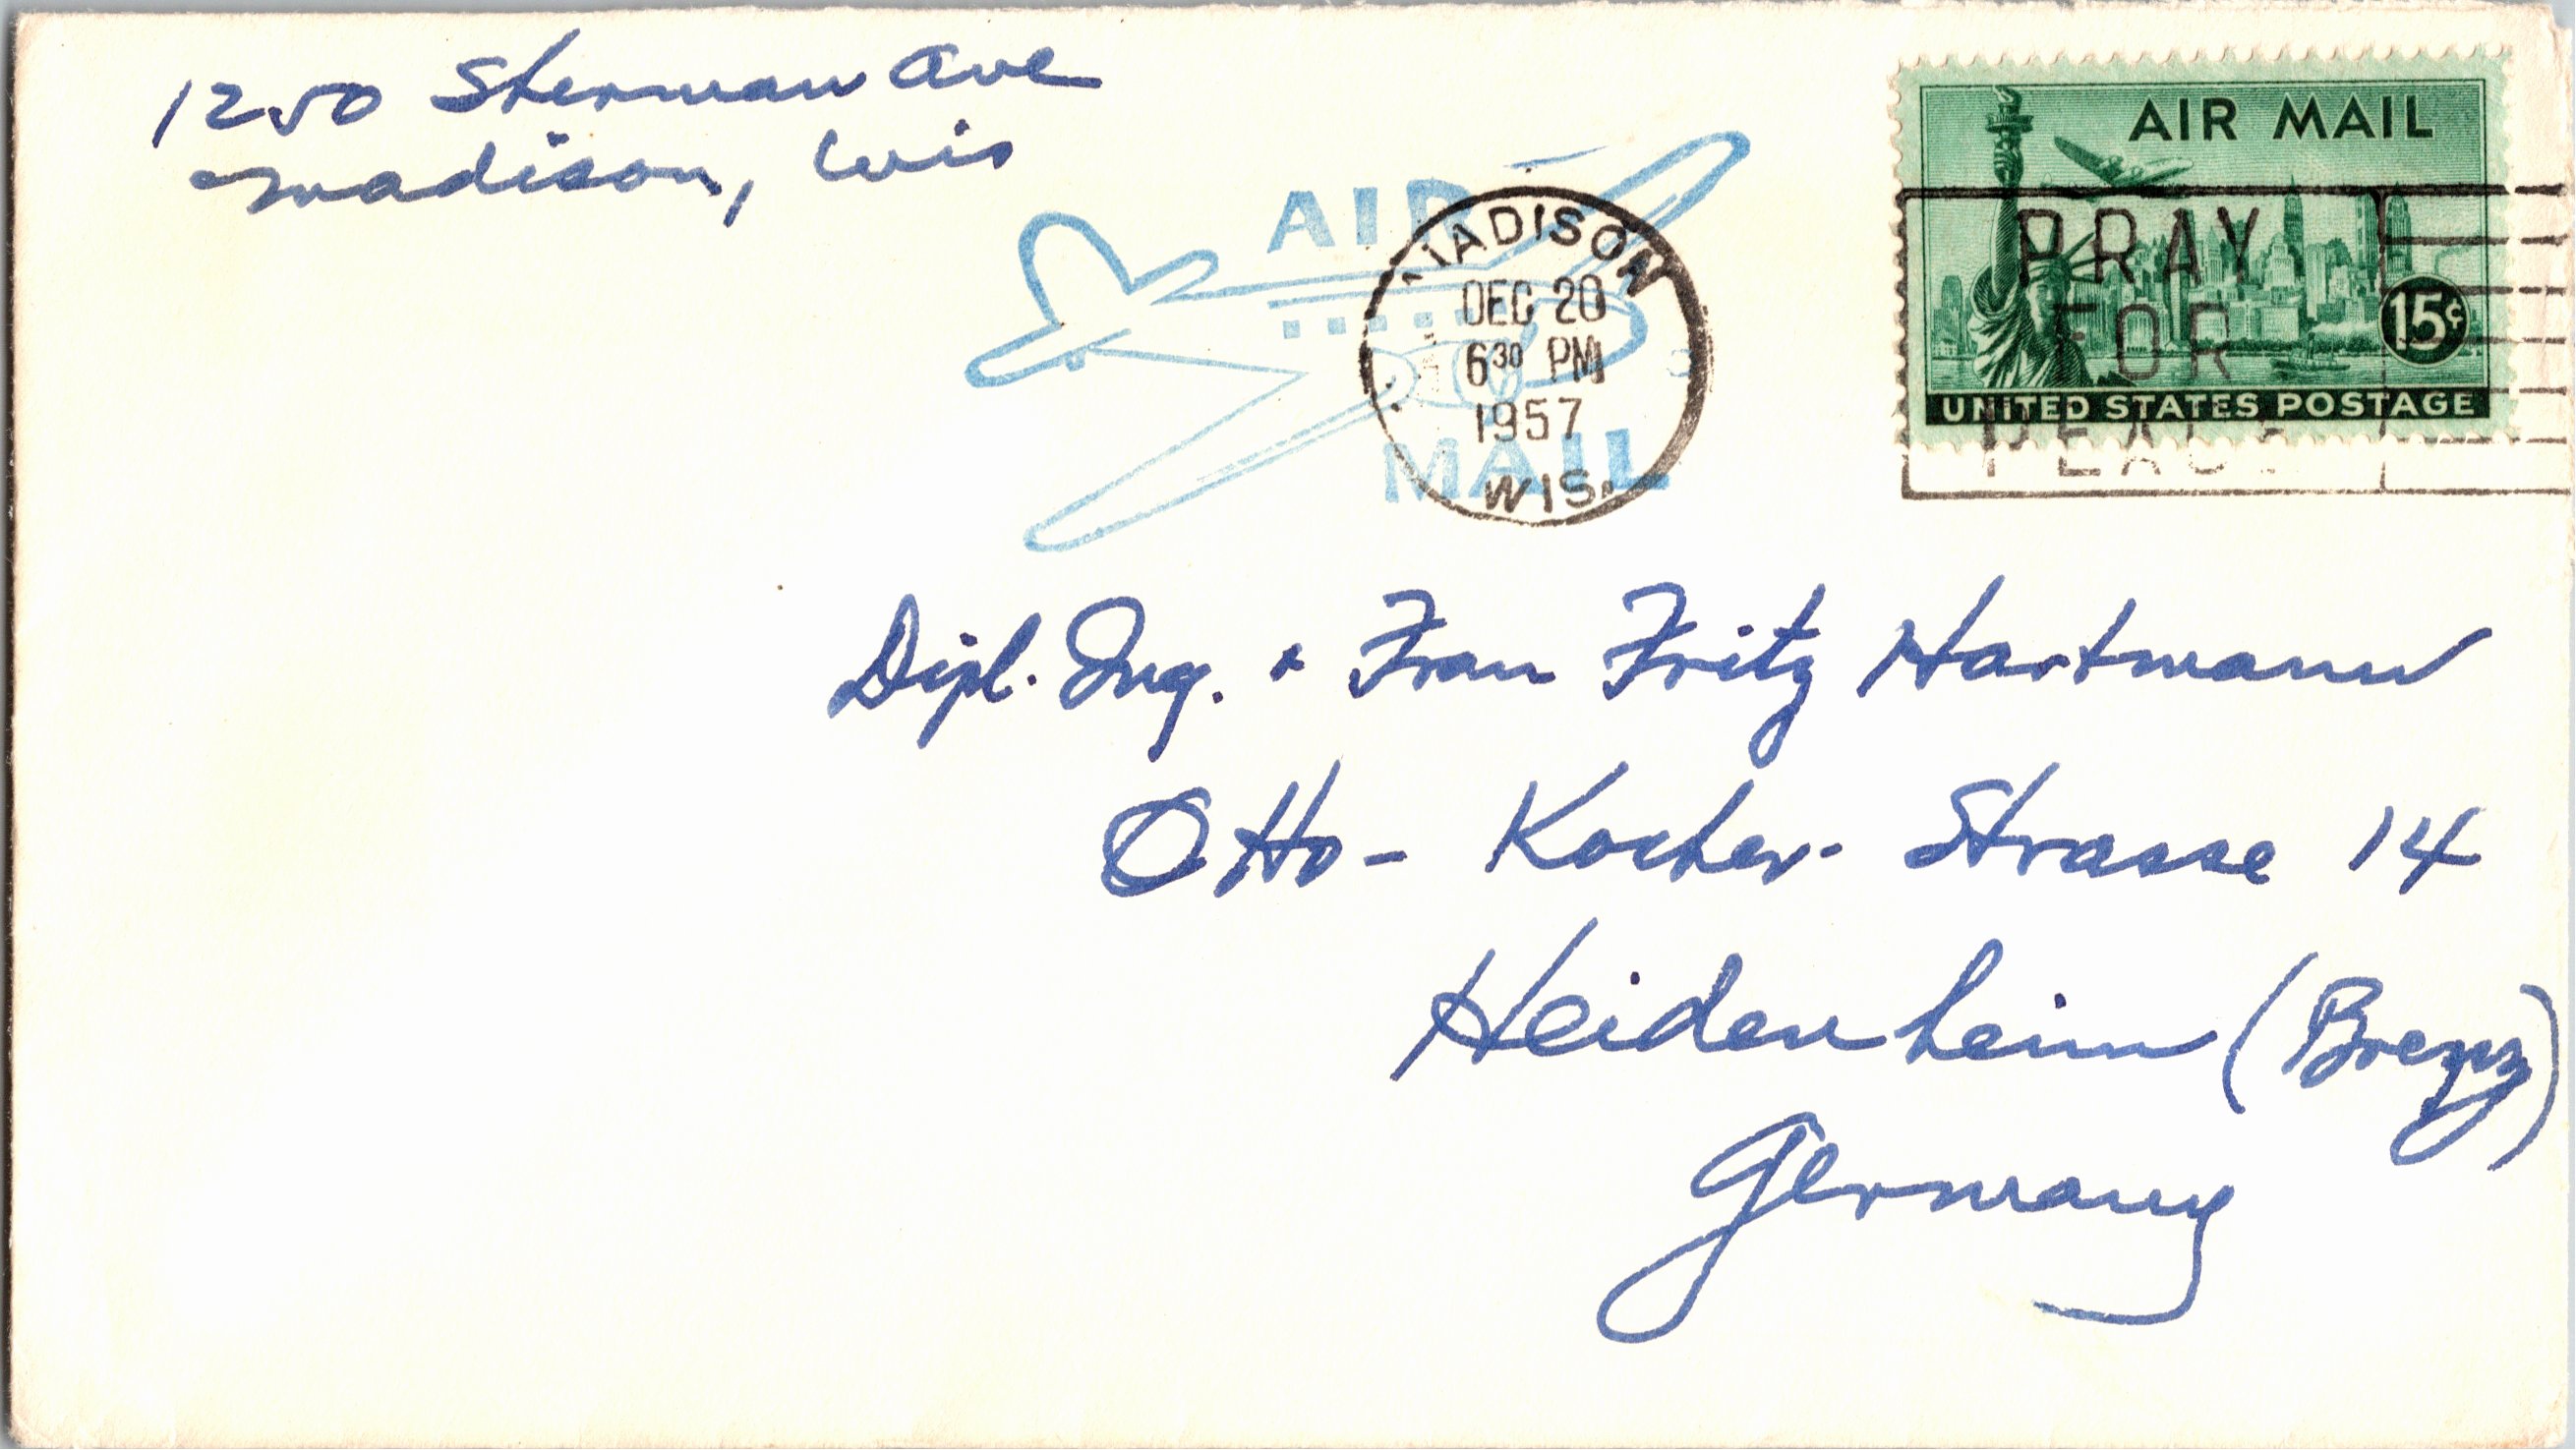 1250 Sherman Ave
Madison, Wis
AIR
MAIL
MADISON
DEC 20
6 30 PM
1957
WIS.
AIR MAIL
15¢
UNITED STATES POSTAGE
PRAY
FOR
PEACE
Dipl. Ing. + Frau Fritz Hartmann
Otto-Kocher-Strasse 14
Heidenheim (Brenz)
Germany